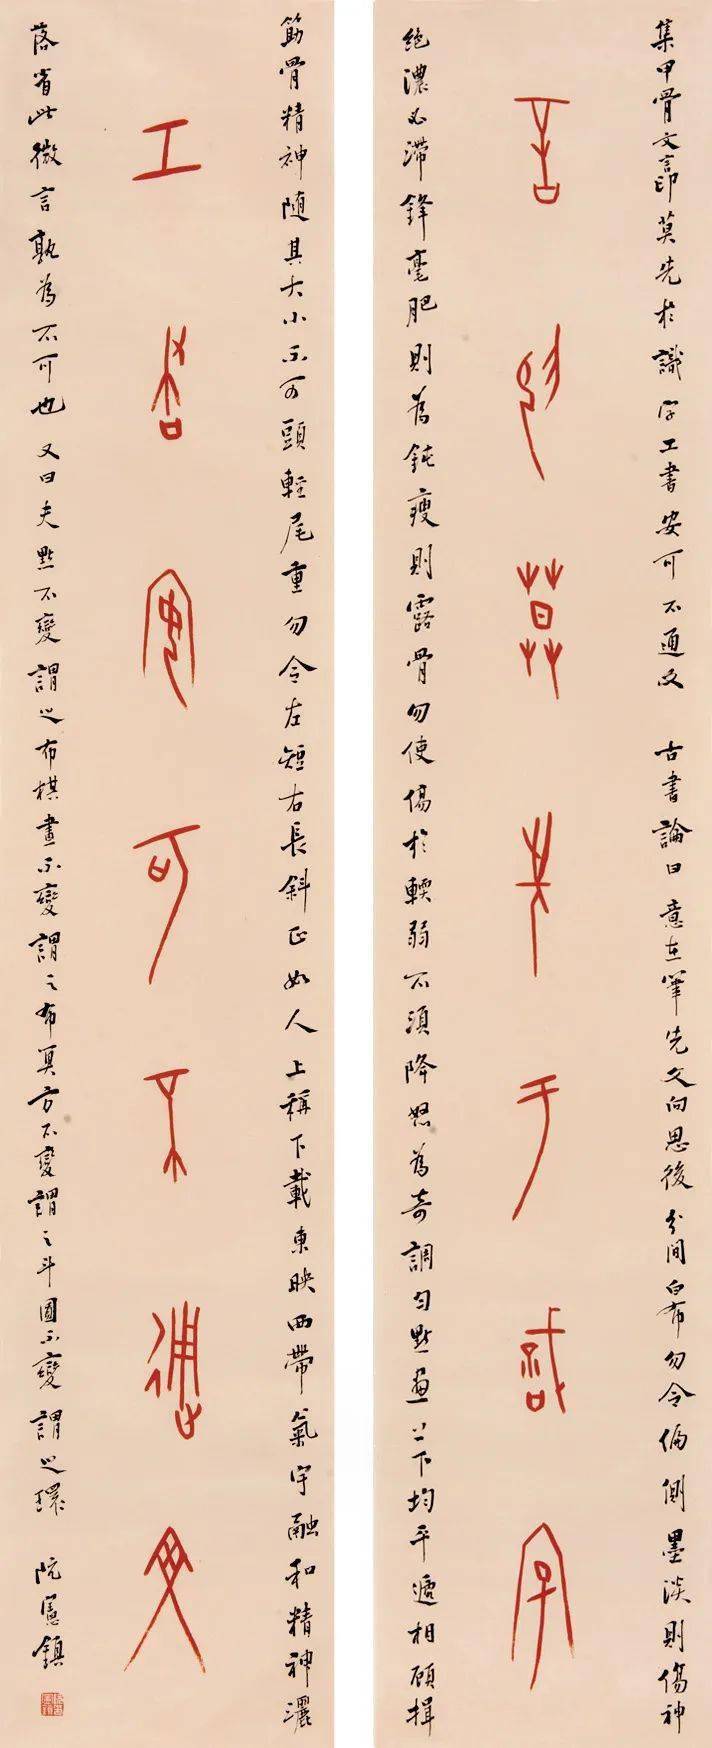 集甲骨文言印莫先於識字工書安可不通文　古書論曰意在筆先文向思後分間白布勿令偏側墨淡則傷神
言印莫先于識字
絕濃必滯鋒毫肥則為鈍瘦則露骨勿使傷於輭弱不須降怒為奇調勻點畫上下均平遞相顧揖
筋骨精神隨其大小不可頭輕尾重勿令左短右長斜正如人上稱下載東映西帶氣宇融和精神灑
工書安可不通文
落省此微言孰為不可也又曰夫點不變謂之布棋畫不變謂之布算方不變謂之斗圓不變謂之環　阮憲鎮